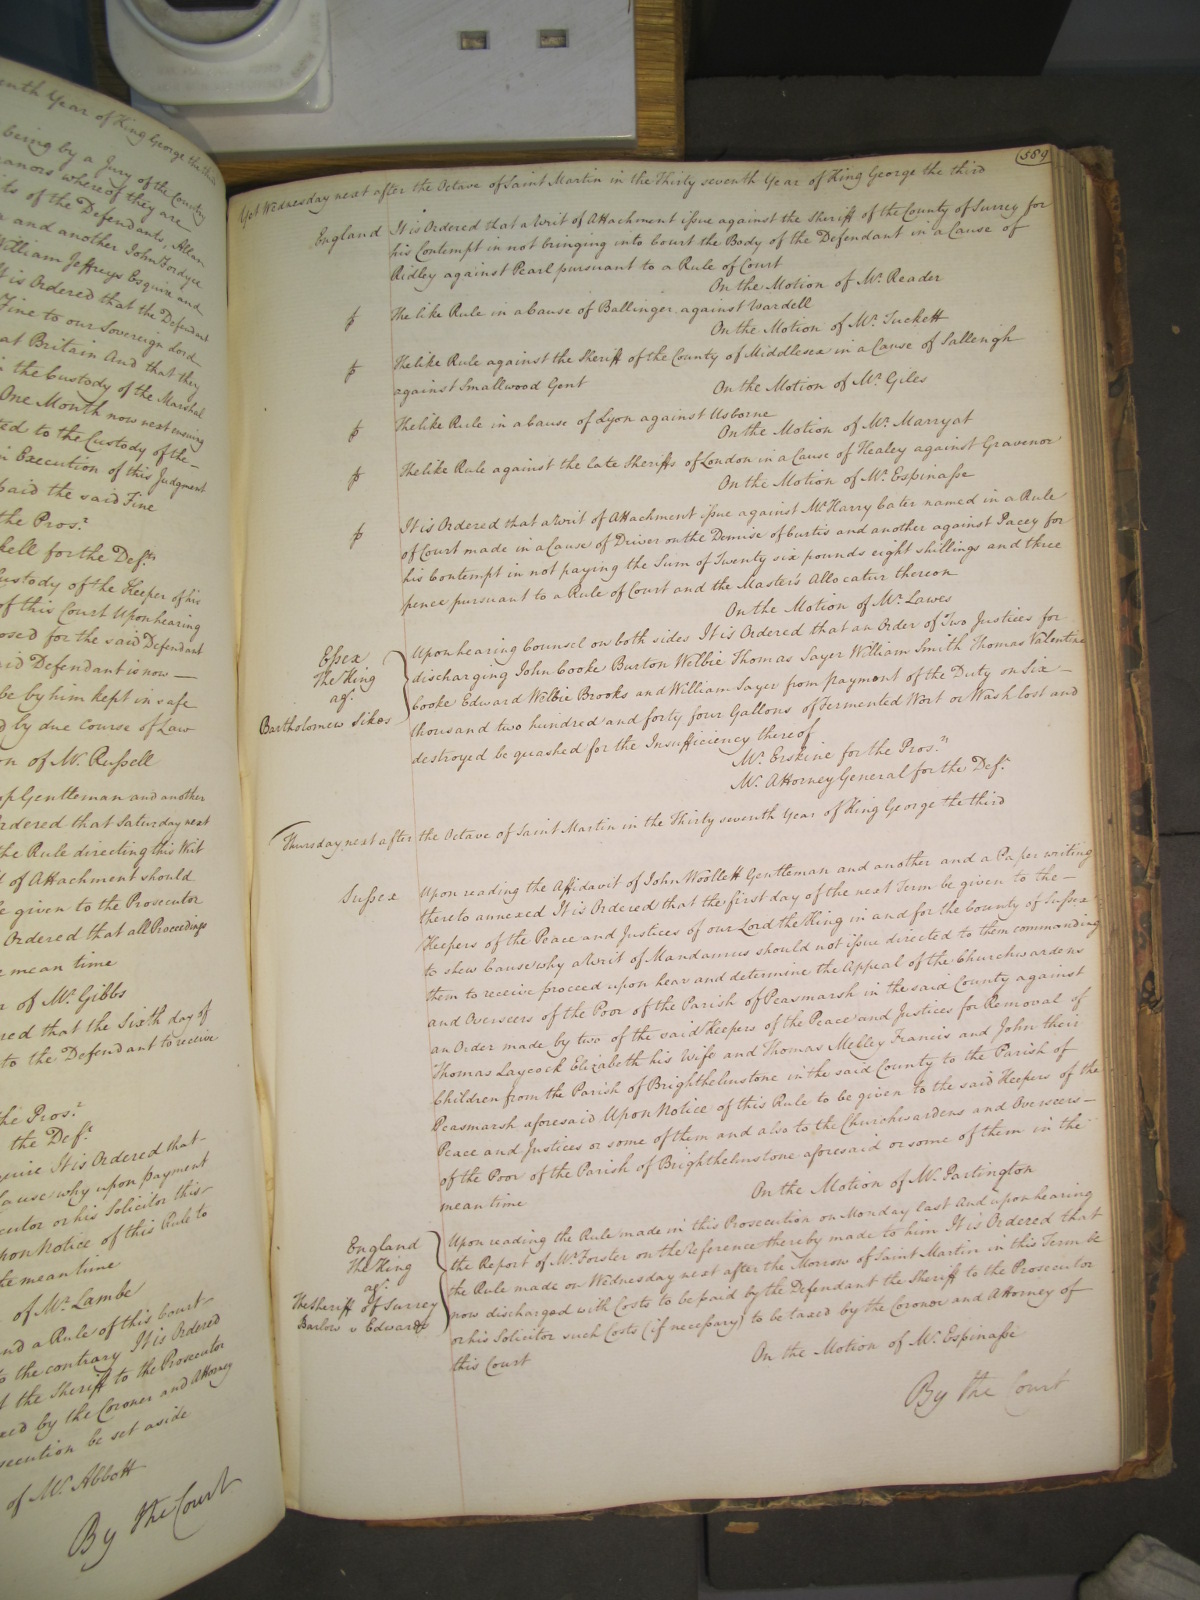 enth Year of King George the third
being by a Jury of the County
anors whereof they are
its of the Defendants, Allan
and another John Fordyce
William Jeffreys Esquire and
It is Ordered that the Defendant
Fine to our Sovereign Lord
at Britain And that they
the Custody of the Marshal
One Month now next ensuing
ted to the Custody of the
in Execution of this Judgment
paid the said Fine
the Pros.r
kell for the Def.ts
ustody of the Keeper of his
of this Court Upon hearing
osed for the said Defendant
aid Defendant is now
be by him kept in safe
d by due course of Law
on of Mr. Russell
op Gentleman and another
rdered that Saturday next
the Rule directing this Writ
t of Attachment should
be given to the Prosecutor
Ordered that all Proceedings
e mean time
n of Mr. Gibbs
red that the Sixth day of
to the Defendant to receive
the Pros.r
the Def.t
quire It is Ordered that
Cause why upon payment
cutor or his Solicitor this
pon Notice of this Rule to
he mean time
of Mr. Lambe
nd a Rule of this Court
to the contrary It is Ordered
t the Sheriff to the Prosecutor
xed by the Coroner and Attorney
secution be set aside
of Mr. Abbott
By the Court
589
Yet Wednesday next after the Octave of Saint Martin in the Thirty seventh Year of King George the third
England It is Ordered that a Writ of Attachment issue against the Sheriff of the County of Surrey for
his Contempt in not bringing into Court the Body of the Defendant in a Cause of
Ridley against Pearl pursuant to a Rule of Court
On the Motion of Mr. Reader
The like Rule in a Cause of Ballinger against Wardell
On the Motion of Mr. Tuckett
The like Rule against the Sheriff of the County of Middlesex in a Cause of Sallengh
against Smallwood Gent
On the Motion of Mr. Giles
The like Rule in a Cause of Lyon against Usborne
On the Motion of Mr. Marryat
The like Rule against the late Sheriffs of London in a Cause of Healey against Gravenor
On the Motion of Mr. Espinasse
It is Ordered that a Writ of Attachment issue against Mr. Harry Cater named in a Rule
of Court made in a Cause of Driver on the Demise of Curtis and another against Pacey for
his Contempt in not paying the Sum of Twenty six pounds eight shillings and three
pence pursuant to a Rule of Court and the Master's Allocatur thereon
On the Motion of Mr. Lawes
Essex
The King
ag.t
Bartholomew Sikes
Upon hearing Counsel on both sides It is Ordered that an Order of Two Justices for
discharging John Cooke Burton Welbie Thomas Sayer William Smith Thomas Valentine
Cooke Edward Welbie Brooks and William Sayer from payment of the Duty on Six
thousand two hundred and forty four Gallons of Fermented Wort or Wash lost and
destroyed be quashed for the Insufficiency thereof
Mr. Erskine for the Pros.rs
Mr. Attorney General for the Def.t
Thursday next after the Octave of Saint Martin in the Thirty seventh Year of King George the third
Sussex
Upon reading the Affidavit of John Woollett Gentleman and another and a Paper writing
thereto annexed It is Ordered that the first day of the next Term be given to the
Keepers of the Peace and Justices of our Lord the King in and for the County of Sussex
to shew Cause why a Writ of Mandamus should not issue directed to them commanding
them to receive proceed upon hear and determine the Appeal of the Churchwardens
and Overseers of the Poor of the Parish of Peasmarsh in the said County against
an Order made by two of the said Keepers of the Peace and Justices for Removal of
Thomas Laycock Elizabeth his Wife and Thomas Francis and John their
Children from the Parish of Brighthelmstone in the said County to the Parish of
Peasmarsh aforesaid Upon Notice of this Rule to be given to the said Keepers of the
Peace and Justices or some of them and also to the Churchwardens and Overseers
of the Poor of the Parish of Brighthelmstone aforesaid or some of them in the
mean time
On the Motion of Mr. Partington
England
The King
ag.t
The Sheriff of Surrey
Barlow v Edwards
Upon reading the Rule made in this Prosecution on Monday last And upon hearing
the Report of Mr. Forster on the Reference thereby made to him It is Ordered that
the Rule made on Wednesday next after the Morrow of Saint Martin in this Term be
now discharged with Costs to be paid by the Defendant the Sheriff to the Prosecutor
or his Solicitor such Costs (if necessary) to be taxed by the Coroner and Attorney of
this Court
On the Motion of Mr. Espinasse
By the Court